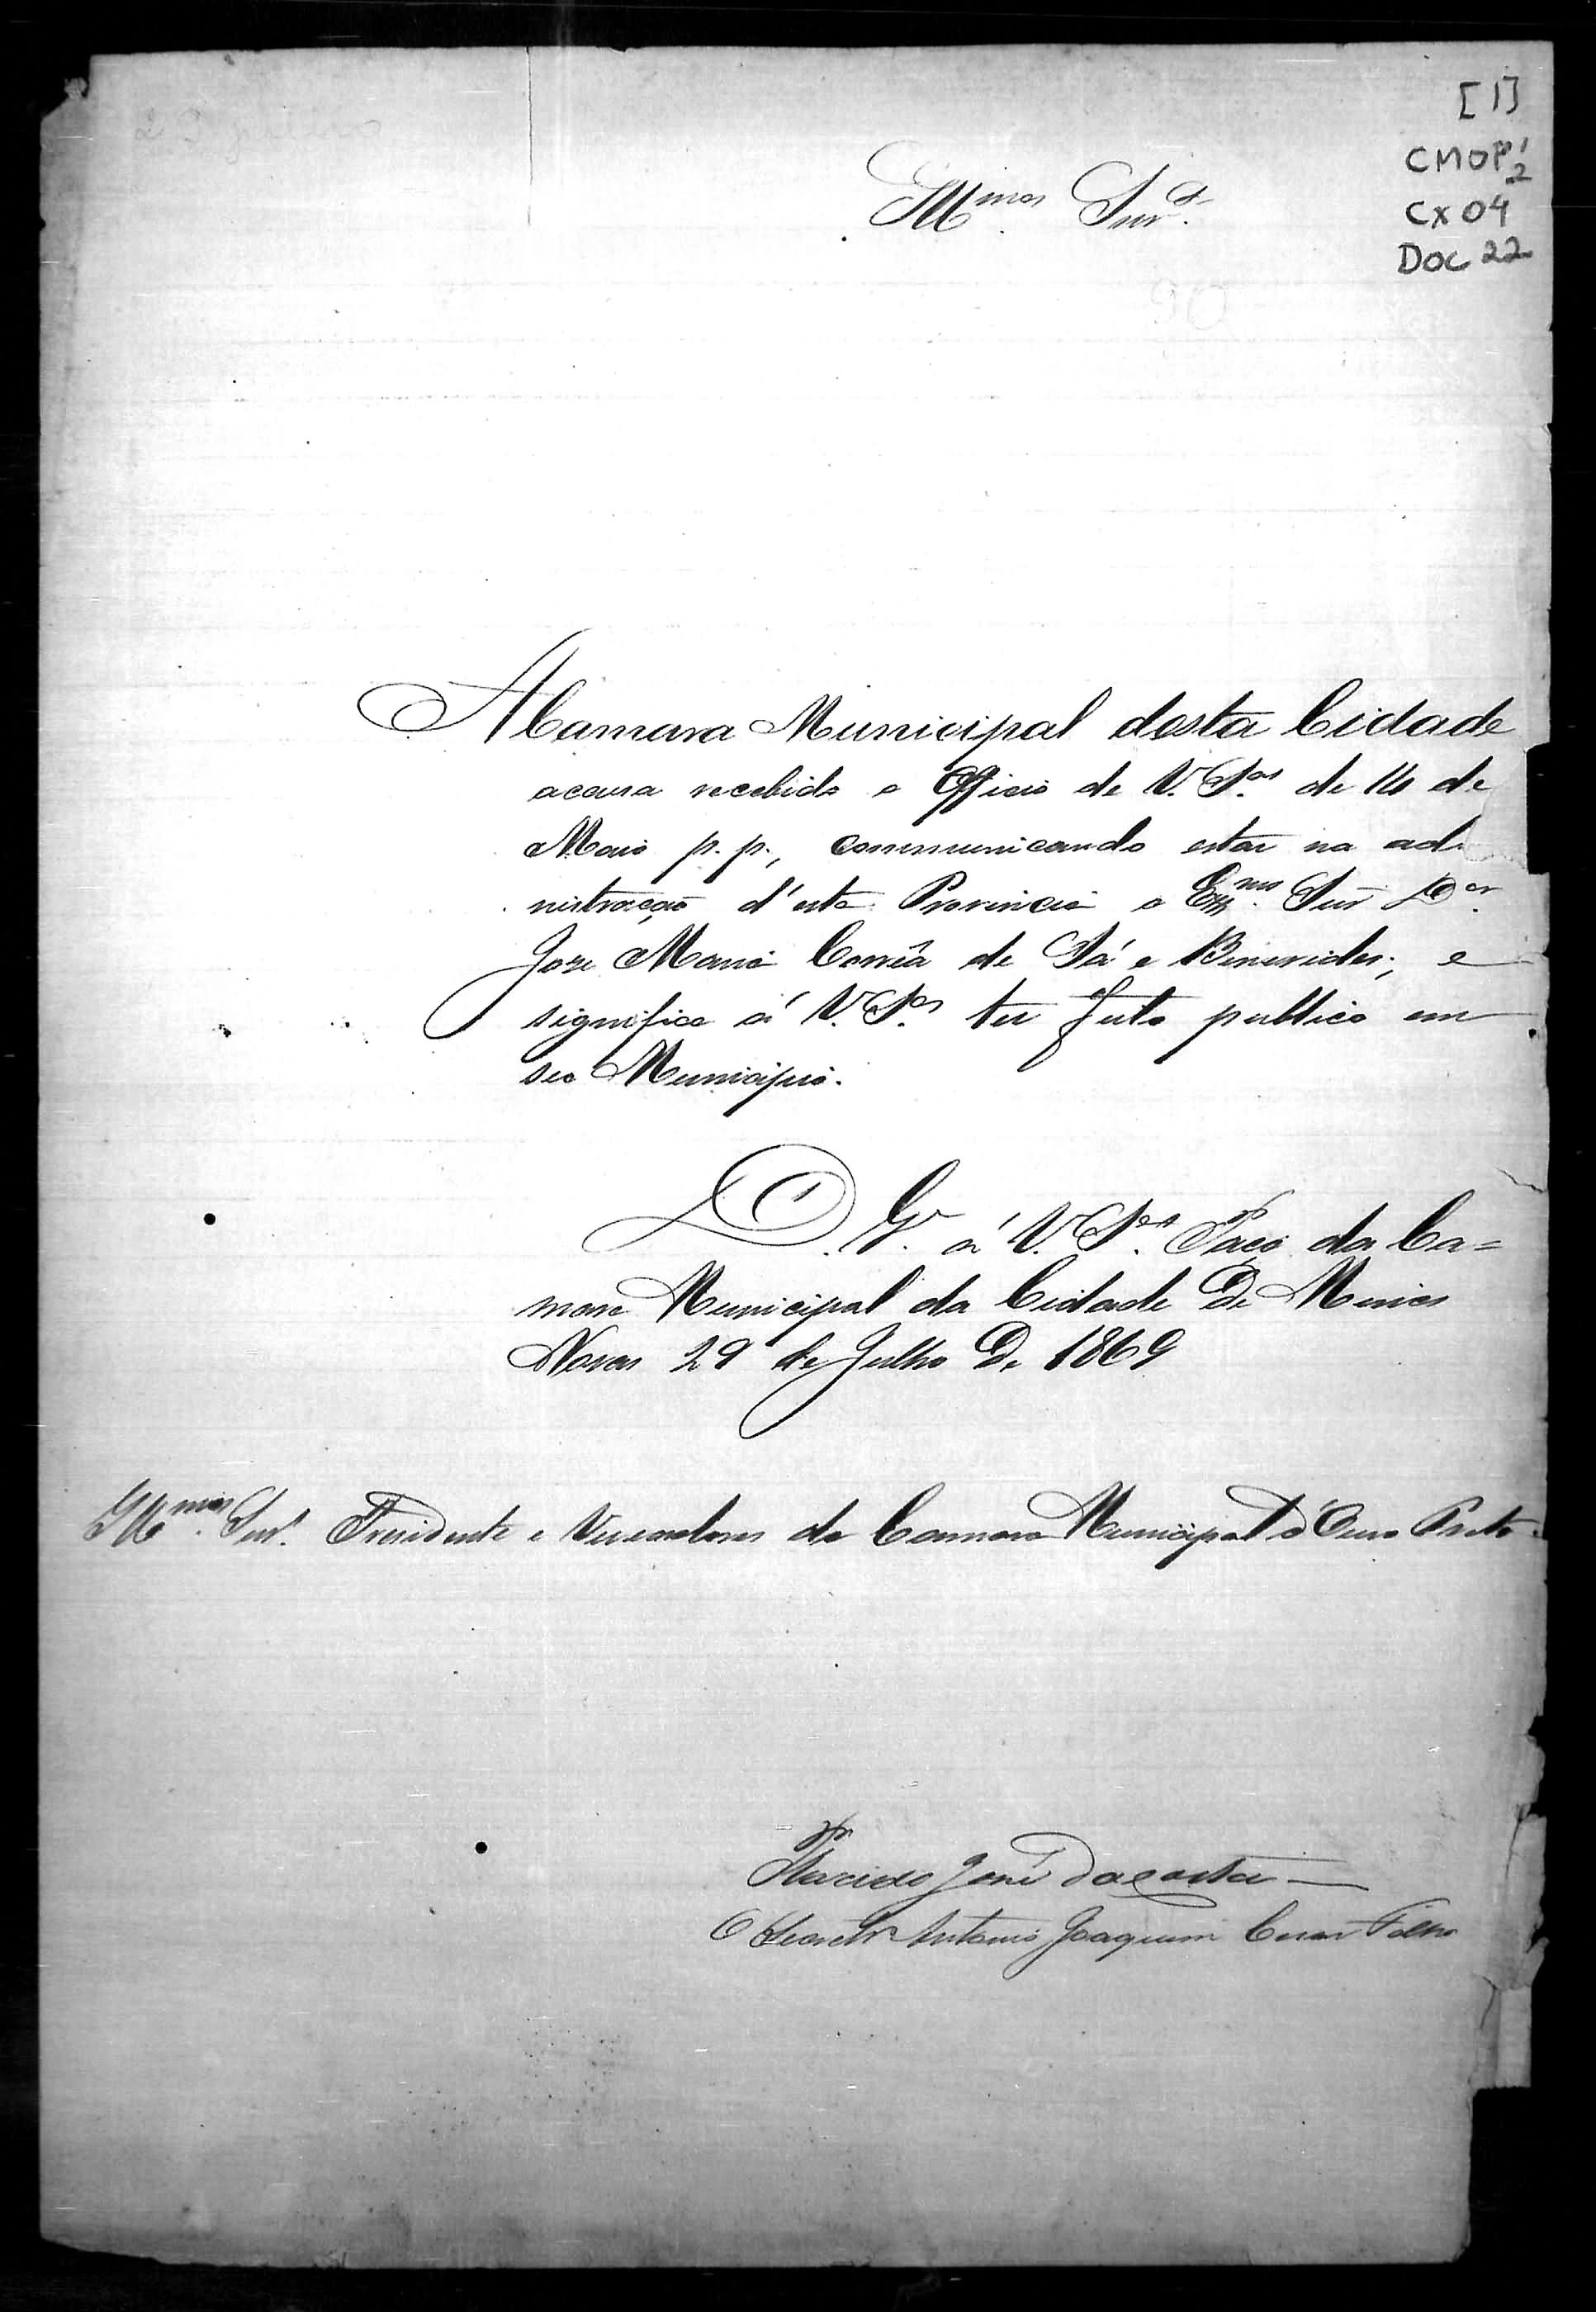 [1]
CMOP 1/2
CX 04
DOC 22
Illmos Snrs.
A Camara Municipal desta Cidade
accusa recebido o Officio de V. Sas de 14 de
Maio p. p., communicando estar na ad
nistração d'esta Provincia o Exmo. Snr Dor.
Jose Maria Corrêa de Sá e Benevides; e
significa á V. Sas ter feito publico em
seo Municipio.
D. Ge. á V. Sas. Paço da Ca=
mara Municipal da Cidade de Minas
Novas 29 de Julho de 1869
Illmos. Snrs. Presidente e Vereadores da Camara Municipal d'Ouro Preto.
Placido José Da Costa
O Secretr Antonio Joaquim Cesar Filho